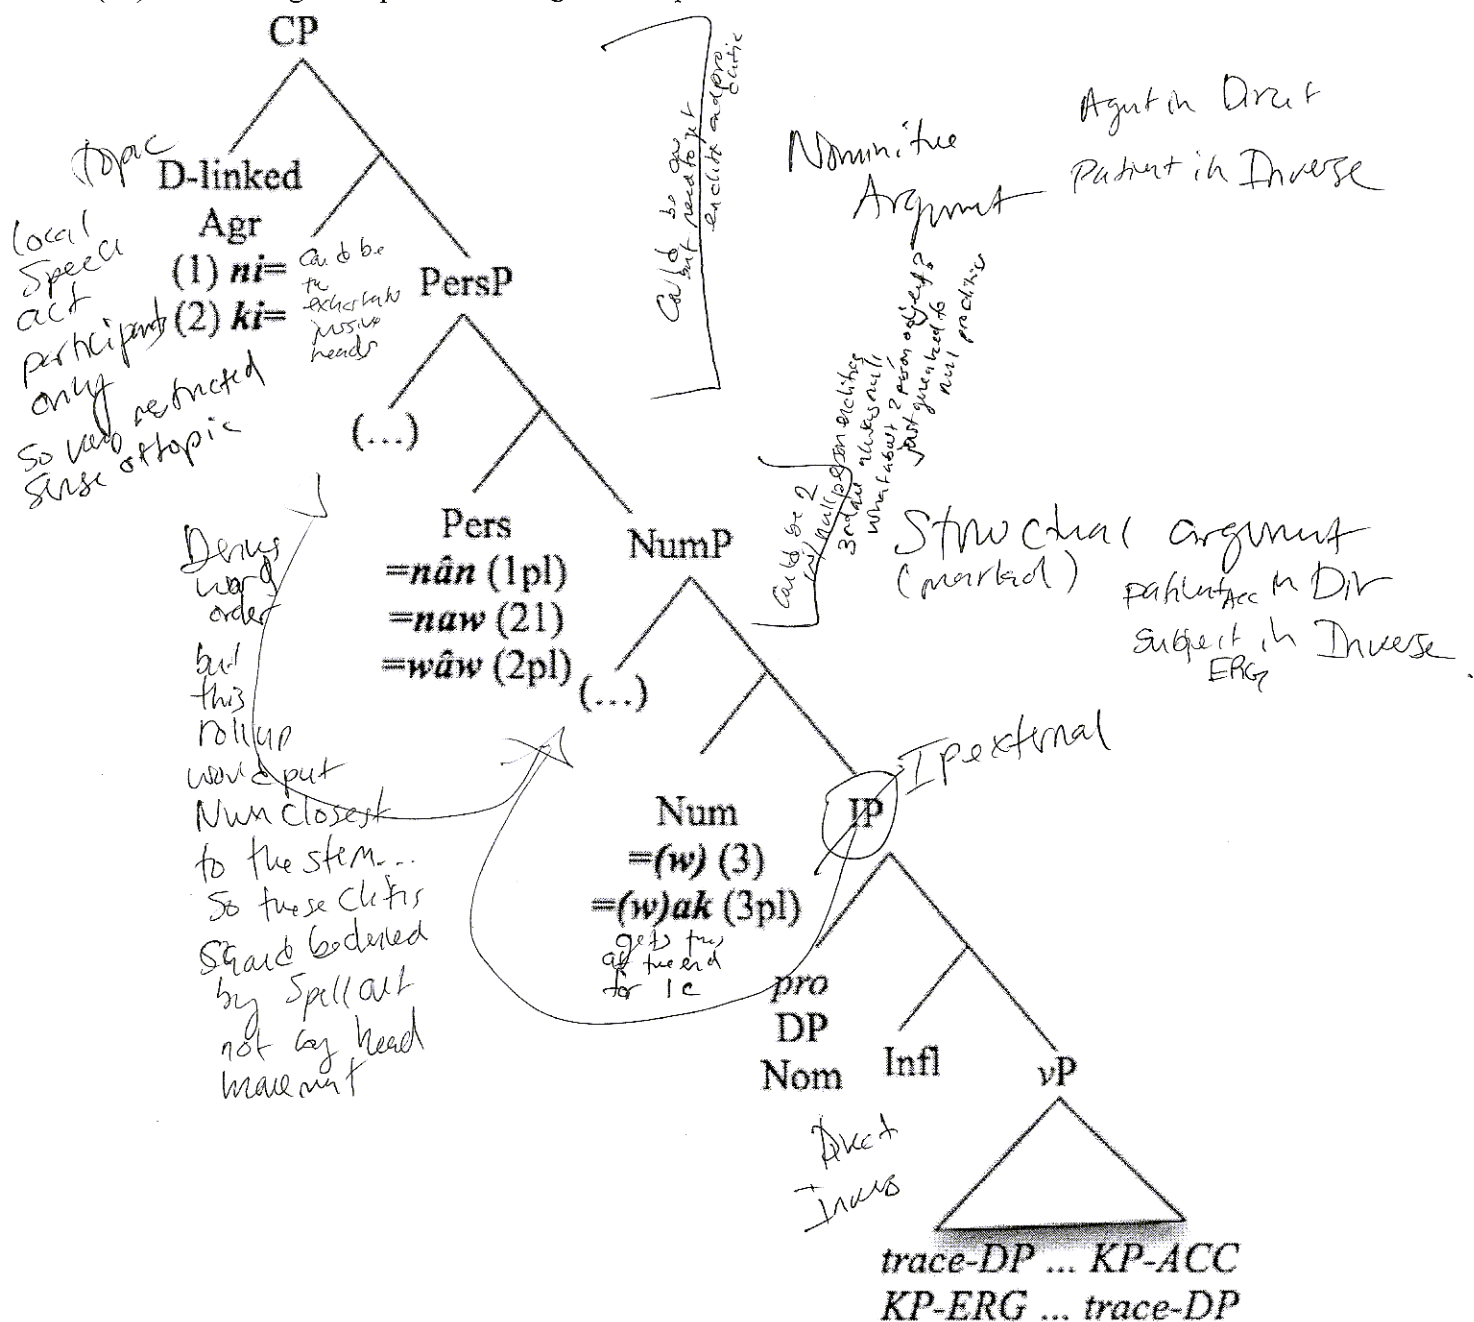 CP
topic
D-linked
Agr
(1) ni=
(2) ki=
local
speech
act
participants
only
so very restricted
sense of topic
could be
the
heads
PersP
(...)
Could be one
but need to get
enclitic and pro
clitic
Nominitive
Argument
Agent in Direct
Patient in Inverse
Pers
=nân (1pl)
=naw (21)
=wâw (2pl)
NumP
(...)
Could be 2
w/ null person enclitics
3rd are always null,
what about 2 person objects?
just generalized to
null proclitics
Structural argument
(marked)
patient ACC in Dir
subject in Inverse
ERG
Derives
word
order
but
this
rollup
would put
Num closest
to the stem...
So these clitics
should be derived
by Spellout
not by head
movement
Num
=(w) (3)
=(w)ak (3pl)
gets this
at the end
for 1c
IP
IP external
pro
DP
Nom
Infl
vP
Direct
Inverse
trace-DP ... KP-ACC
KP-ERG ... trace-DP